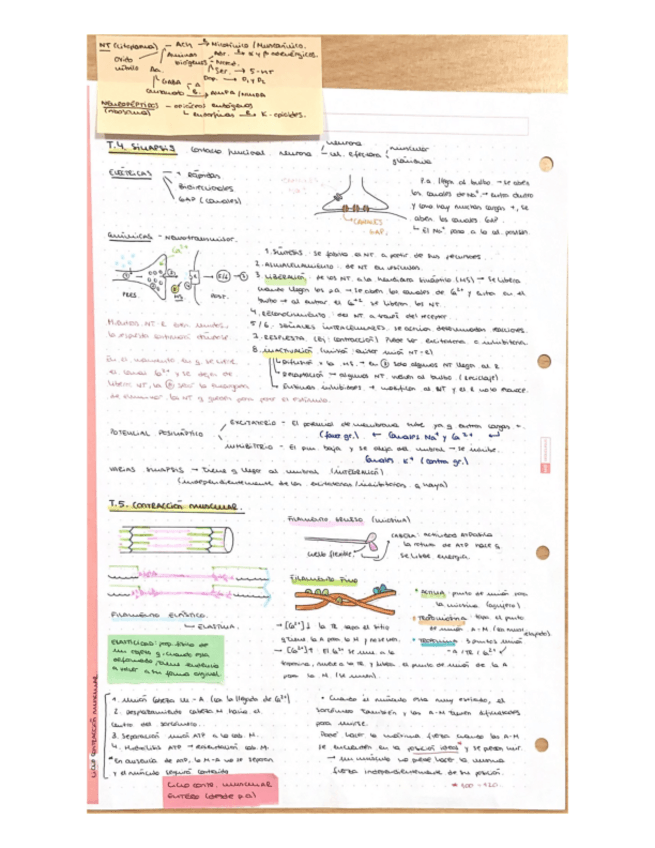 NT (citoplasma) - ACh → Nicotínico / Muscarínico.
óxido
nítrico
Aminas
biógenas
Ser. → 5-HT
Dop. → D1 y D2
GABA
A
B
Aa.
Glutamato → AMPA / NMDA
NEUROPÉPTIDOS - opioides endógenos
K-opioides.
T.4. SINAPSIS
Contacto funcional neurona
neurona
cél. efectora
muscular
glandular
ELÉCTRICAS
Rápidas
Bidireccionales
GAP (canales)
CANALES
GAP.
P.a. llega al bulbo → se abren
los canales de Na+ → entra dentro
y como hay muchas cargas +, se
abren los canales GAP.
↳ El Na+ pasa a la cél. postsin.
QUÍMICAS - Neurotransmisor.
Ca2+
PRES.
MS
POST.
1. SÍNTESIS: se fabrica el NT a partir de sus precursores.
2. ALMACENAMIENTO: de NT en vesículas.
3. LIBERACIÓN: de los NT a la hendidura sináptica (HS) → Se libera
cuando llegan los p.a → se abren los canales de Ca2+ y entra en el
bulbo → al entrar el Ca2+ se liberan los NT.
4. RECONOCIMIENTO: del NT a través del receptor.
5/6. SEÑALES INTRACELULARES, se activan determinadas reacciones.
7. RESPUESTA (Ej: contracción) Puede ser excitatoria o inhibitoria.
8. INACTIVACIÓN
Difusión
algunos NT llegan al R.
Recaptación → algunos NT vuelven al bulbo (reciclaje)
Enzimas inhibidoras → modifican al NT y el R no lo reconoce.
Mientras NT-R estén unidos,
la respuesta continuará
En el momento en q se cierre
el canal Ca2+ y se deja de
liberar NT, la
se encargará
de eliminar los NT y
para parar el estímulo.
POTENCIAL POSTSINÁPTICO
EXCITATORIO - El potencial de membrana sube ya q entran cargas +.
(favor gr.) ← Canales Na+ y Ca2+
INHIBITORIO - El p.m. baja y se aleja del umbral → se inhibe.
Canales K+ (contra gr.)
VARIAS SINAPSIS → Tiene q llegar al umbral (INTEGRACIÓN)
(independientemente de las excitatorias/inhibitorias q haya)
T.5. CONTRACCIÓN MUSCULAR.
FILAMENTO GRUESO (miosina)
CABEZA: actividad ATPásica
la rotura de ATP hace q
se libere energía.
Cuello flexible.
FILAMENTO FINO
• ACTINA: punto de unión para
la miosina
• TROPOMIOSINA: tapa el punto
de unión A-M.
• TROPONINA: 3 puntos unión
- A / TR / Ca2+
FILAMENTO ELÁSTICO.
↳ ELASTINA.
ELASTICIDAD: propiedad de
un cuerpo q, cuando está
deformado, tiene tendencia
a volver a su forma original
→ [Ca2+]↓ la TR tapa el sitio
q tiene la A para la M y no se unen.
→ [Ca2+]↑. El Ca2+ se une a la
troponina, mueve a la TR y libera el punto de unión de la A
para la M. (se unen).
CICLO CONTRACCIÓN MUSCULAR
1. Unión cabeza M - A (con la llegada de Ca2+)
2. Desplazamiento cabeza M hacia el
centro del sarcómero.
3. Separación unión ATP a la cab. M.
4. Hidrólisis ATP → orientación cab. M.
*En ausencia de ATP, la M-A no se separan
y el músculo seguirá contraído
• Cuando el músculo está muy estirado, el
sarcómero también y las A-M tienen dificultades
para unirse.
Puede hacer la máxima fuerza cuando las A-M
se encuentran en la posición ideal* y se pueden unir.
→ Un músculo no puede hacer la misma
fuerza independientemente de su posición.
* 100 - 120.
CICLO CONTR. MUSCULAR
ENTERO (desde p.a)